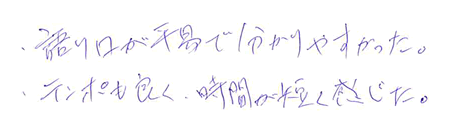 ・語り口が平易で分かりやすかった。
・テンポも良く、時間が短く感じた。